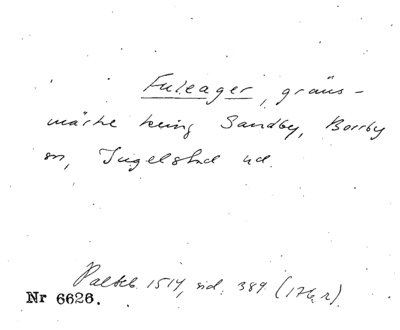 Fuleager, gräns-
märke kring Sandby, Borrby
sn, Ingelstad hd.
Palteb. 1514, sid. 389 (176 r).
Nr 6626.